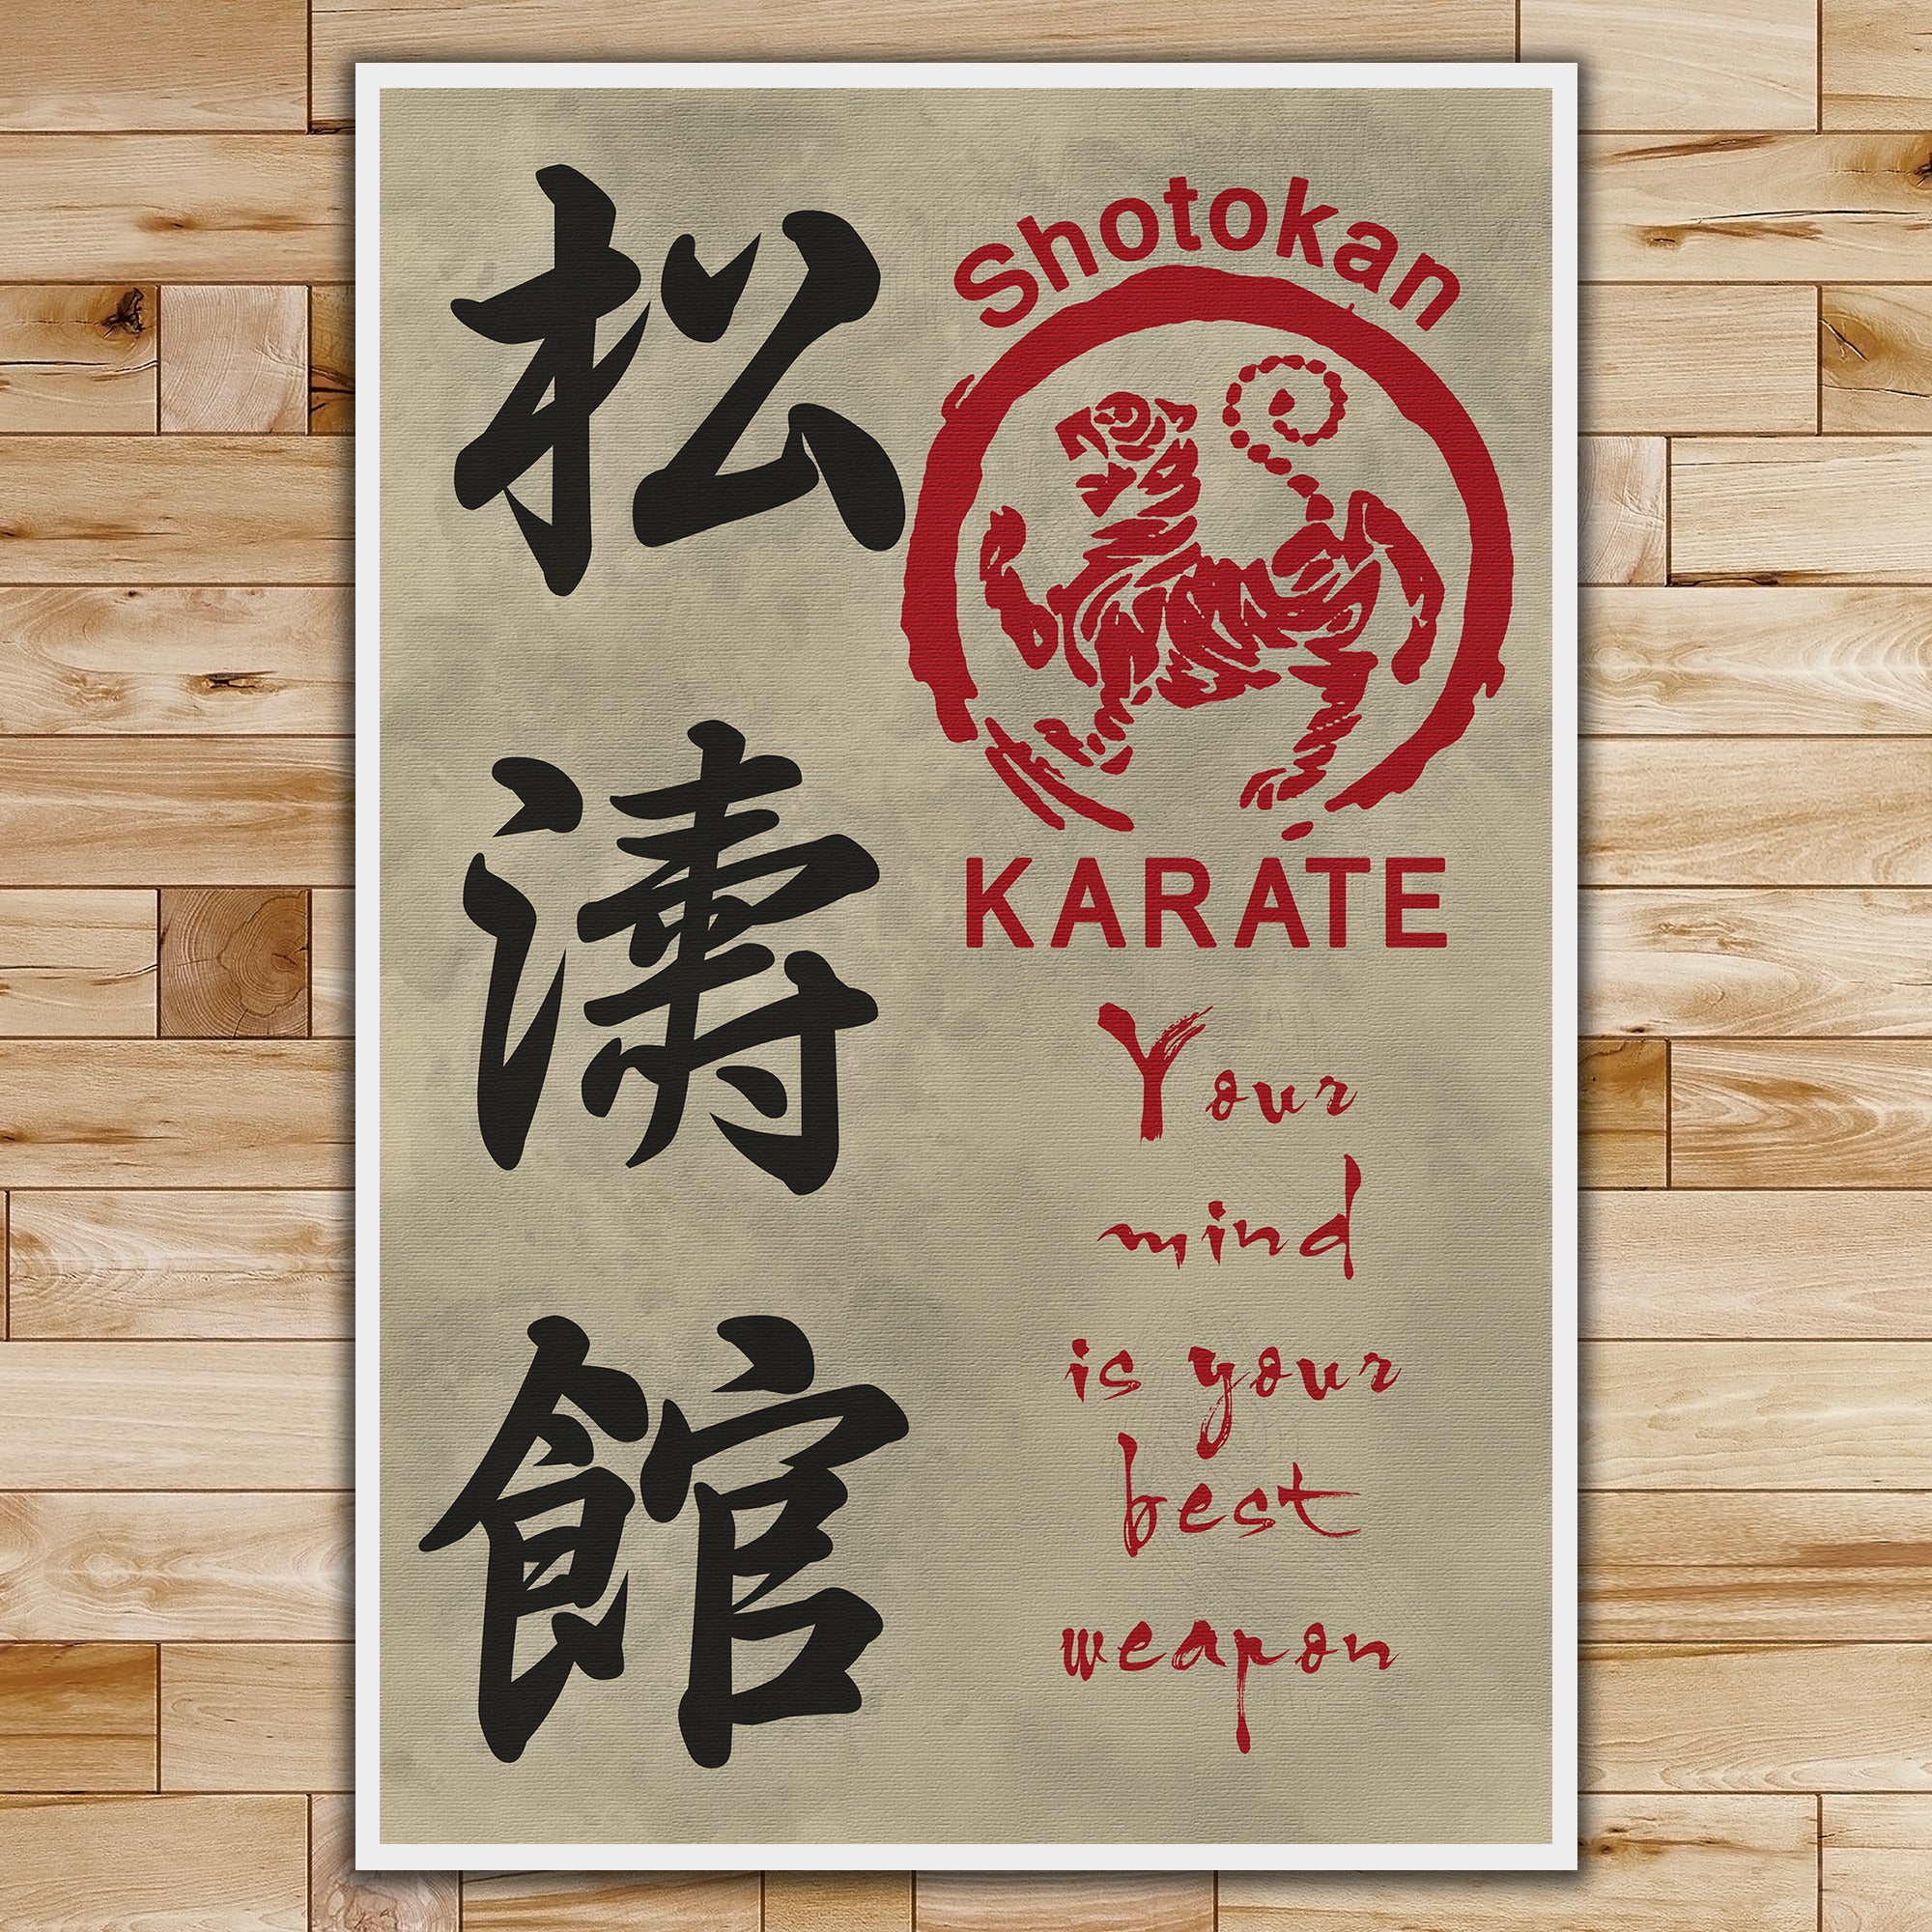 松濤館
Shotokan
KARATE
Your
mind
is your
best
weapon